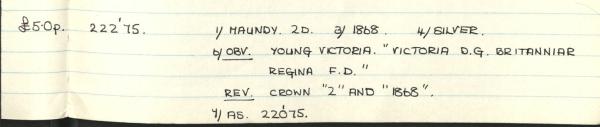 £5.0p. 222'75. 1/ MAUNDY. 2D. 3/ 1868. 4/ SILVER.
6/ OBV. YOUNG VICTORIA. "VICTORIA D.G. BRITANNIAR
REGINA F.D."
REV. CROWN "2" AND "1868".
7/ AS. 220'75.